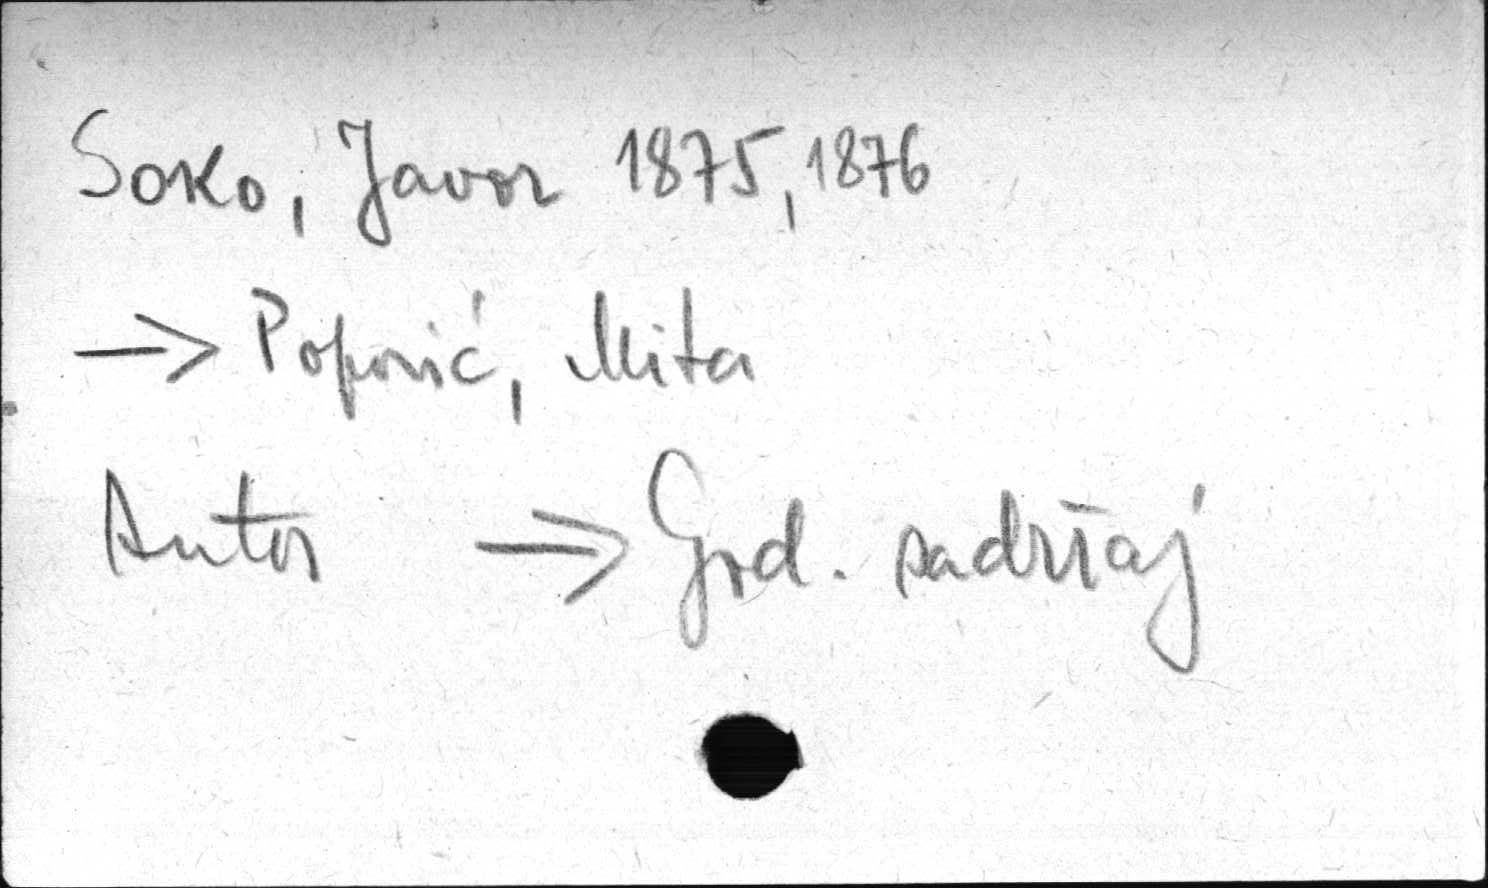 Soko, Javor 1875, 1876
→ Popović, Mita
Autor → God. sadržaj